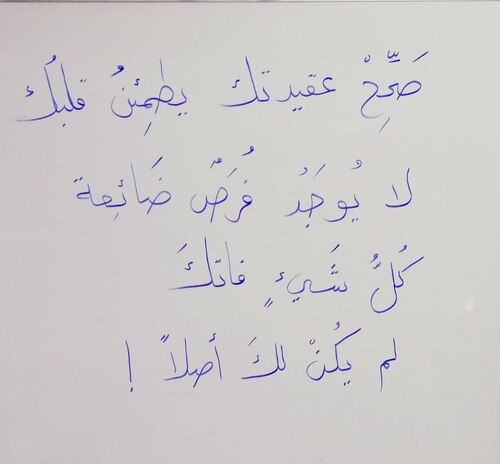 صَحِّحْ عقيدتك يطمِئنُ قلبُك
لا يُوجَدُ فُرَصٌ ضَائِعة
كُلُّ شَيءٍ فاتكَ
لم يكُنْ لكَ أصلاً !